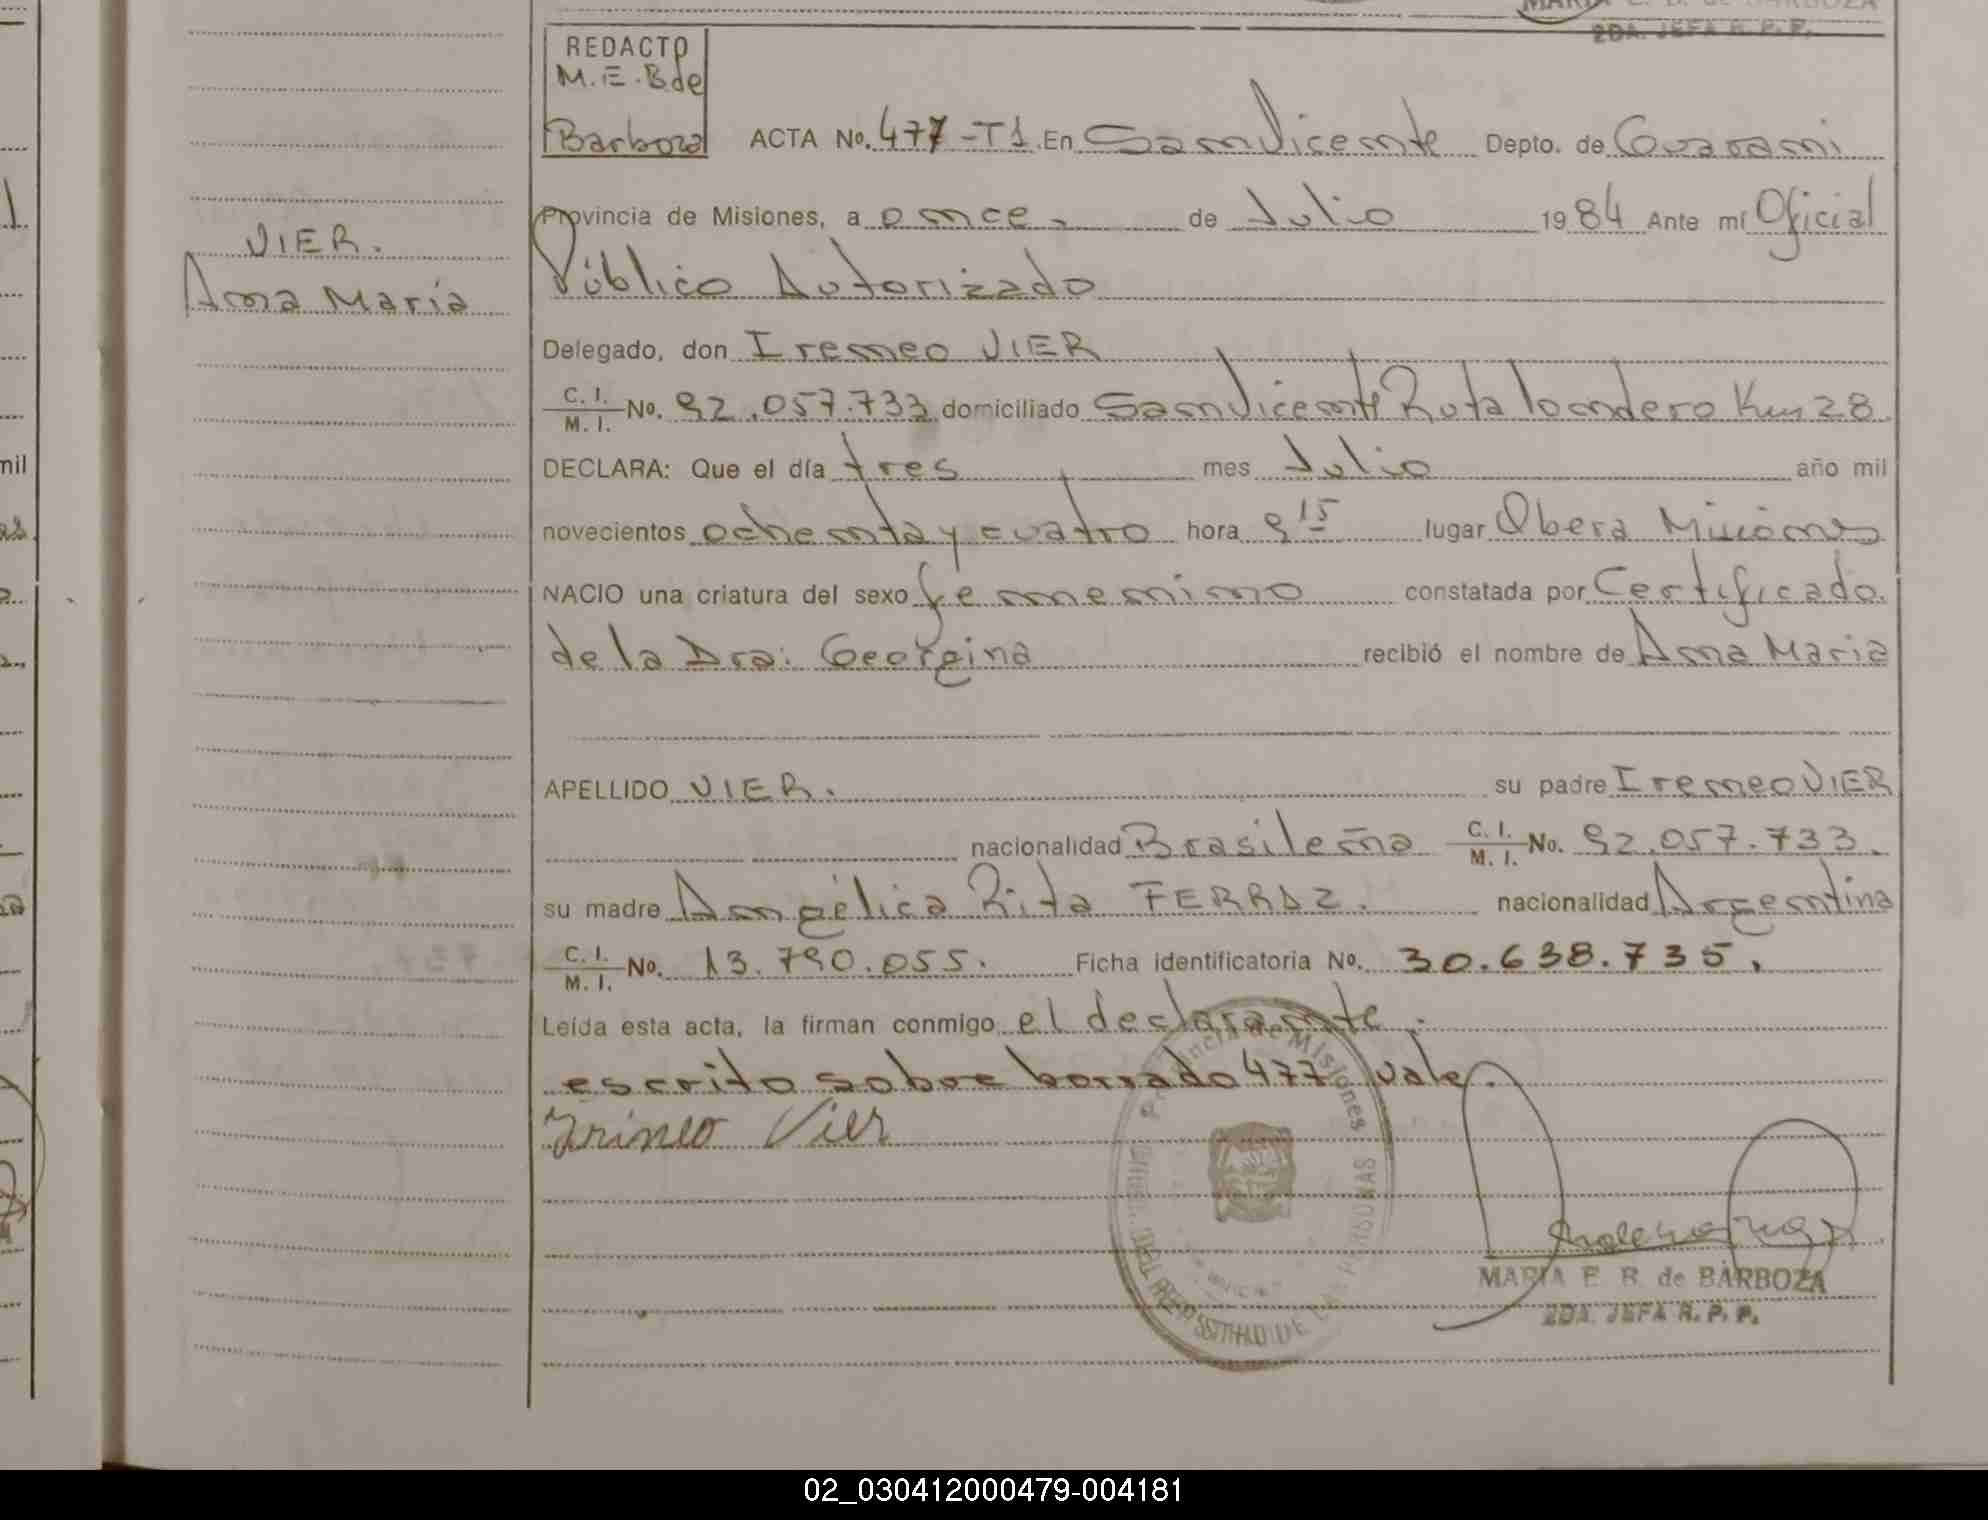 MARIA E. B. de BARBOZA
2DA. JEFA R. P. P.
REDACTO
M. E. B de
Barboza
ACTA No. 477-T1 En San Vicente Depto. de Guarani
Provincia de Misiones, a once de Julio 1984 Ante mí Oficial
Público Autorizado
VIER.
Ana María
Delegado, don Ireneo VIER
C. I. / M. I. No. 92.057.733 domiciliado San Vicente Ruta Km 28
DECLARA: Que el día tres mes Julio año mil
novecientos ochenta y cuatro hora 9 15 lugar Obera Misiones
NACIO una criatura del sexo femenino constatada por Certificado
de la Dra: Georgina recibió el nombre de Ana Maria
APELLIDO VIER. su padre Ireneo VIER
nacionalidad Brasileña C. I. / M. I. No. 92.057.733.
su madre Angélica Rita FERRAZ. nacionalidad Argentina
C. I. / M. I. No. 13.790.055. Ficha identificatoria No. 30.638.735.
Leída esta acta, la firman conmigo el declarante.
escrito sobre borrado 477 vale.
Irineo Vier
Provincia de Misiones
DE LAS PERSONAS
MARIA E. B. de BARBOZA
2DA. JEFA R. P. P.
mil
02_030412000479-004181